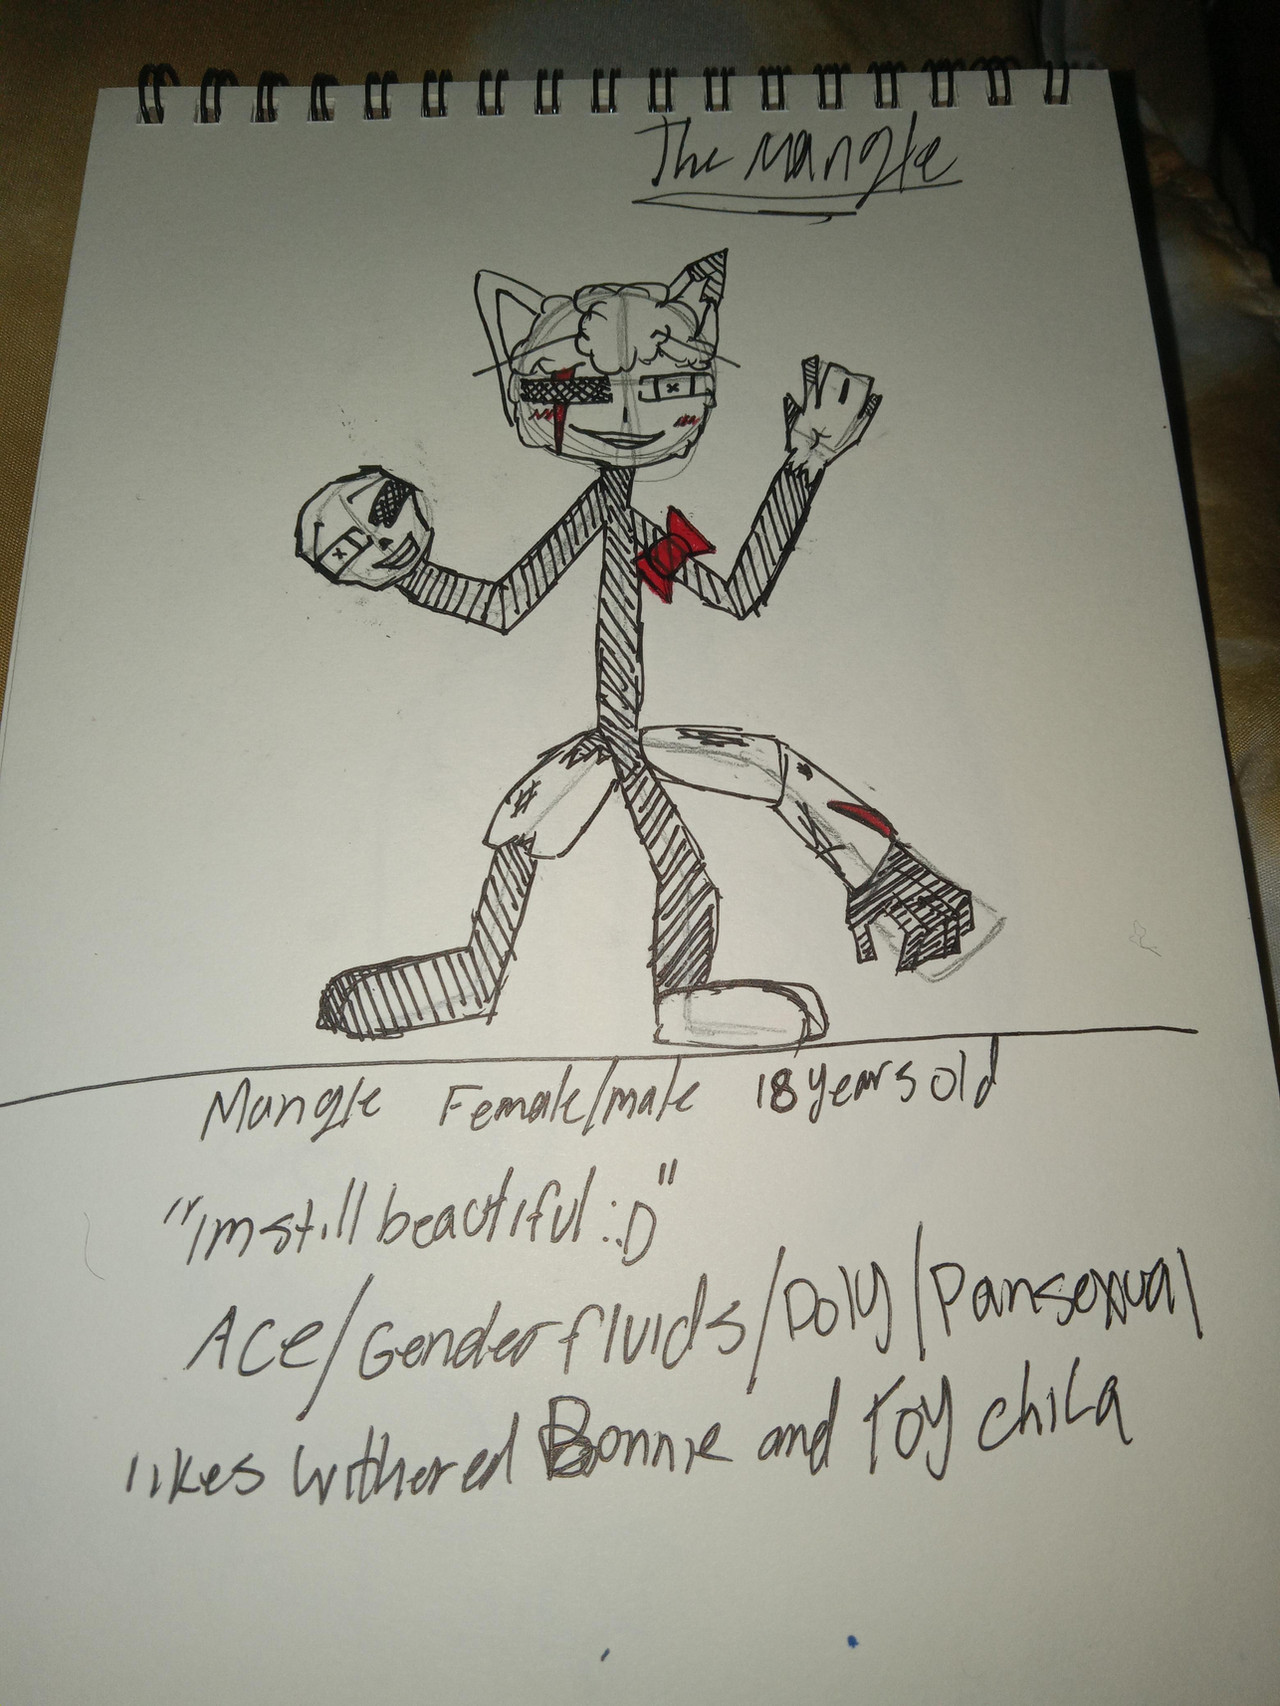 The Mangle
Mangle Female/male 18 years old
"im still beautiful :D"
Ace/Genderfluids/Poly/Pansexual
likes withered Bonnie and Toy chica